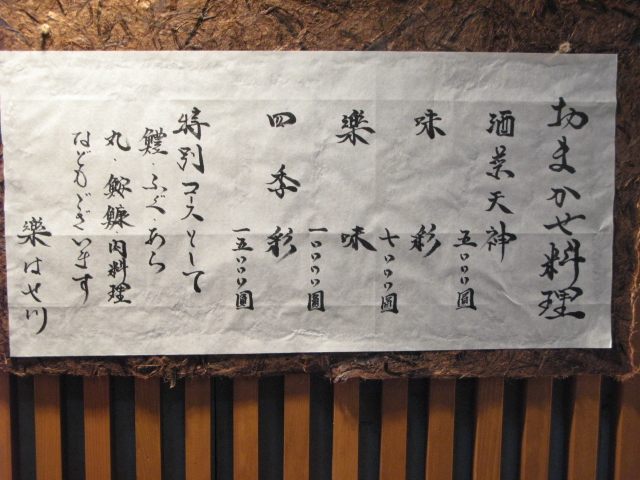 おまかせ料理
酒菜天神
五〇〇〇圓
味彩
七〇〇〇圓
樂味
一〇〇〇〇圓
四季彩
一五〇〇〇圓
特別コースとして
鱧ふぐあら
丸・鮟鱇・肉料理
などもございます
樂はせ川